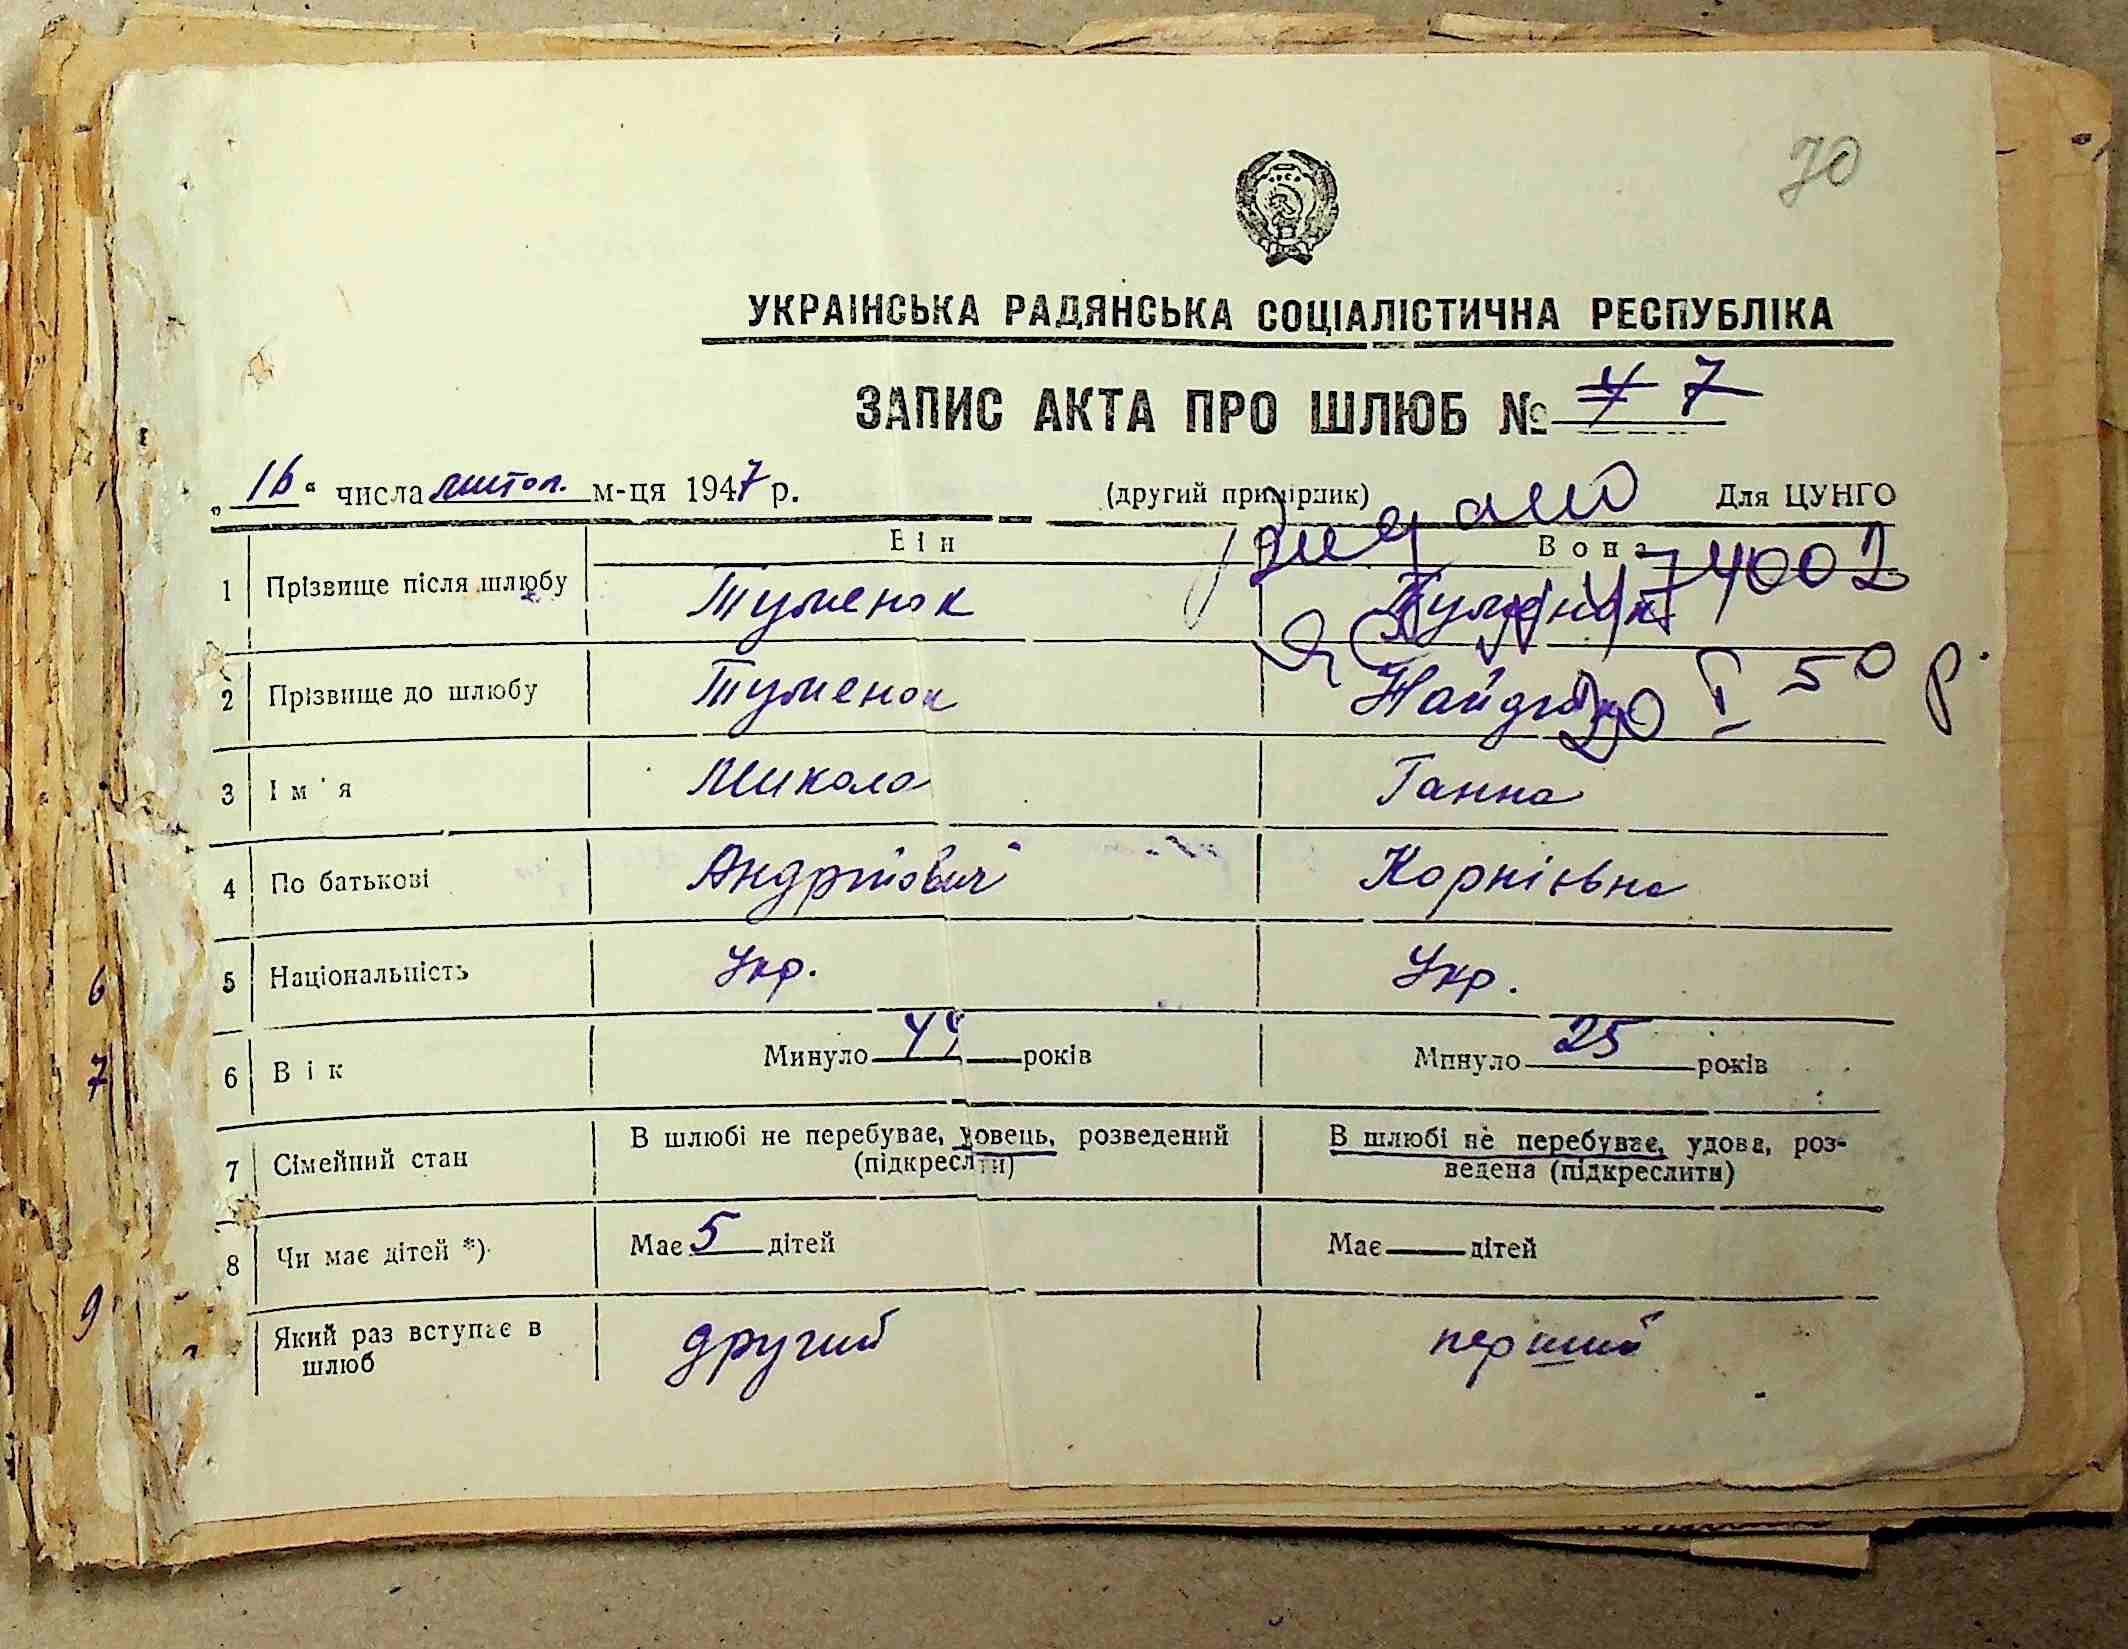 70
УКРАЇНСЬКА РАДЯНСЬКА СОЦІАЛІСТИЧНА РЕСПУБЛІКА
ЗАПИС АКТА ПРО ШЛЮБ № 7
„16“ числа листоп. м-ця 1947 р. (другий примірник) Для ЦУНГО
видано
Він Вона
1 Прізвище після шлюбу Туменок Туменок
74002
20 I 50 р.
2 Прізвище до шлюбу Туменок
3 Ім'я Микола Ганна
4 По батькові Андрійович Корніївна
5 Національність Укр. Укр.
6 Вік Минуло 44 років Минуло 25 років
7 Сімейний стан В шлюбі не перебуває, удовець, розведений (підкреслити) В шлюбі не перебуває, удова, роз-
ведена (підкреслити)
8 Чи має дітей *) Має 5 дітей Має — дітей
Який раз вступає в шлюб другий перший
6
7
9